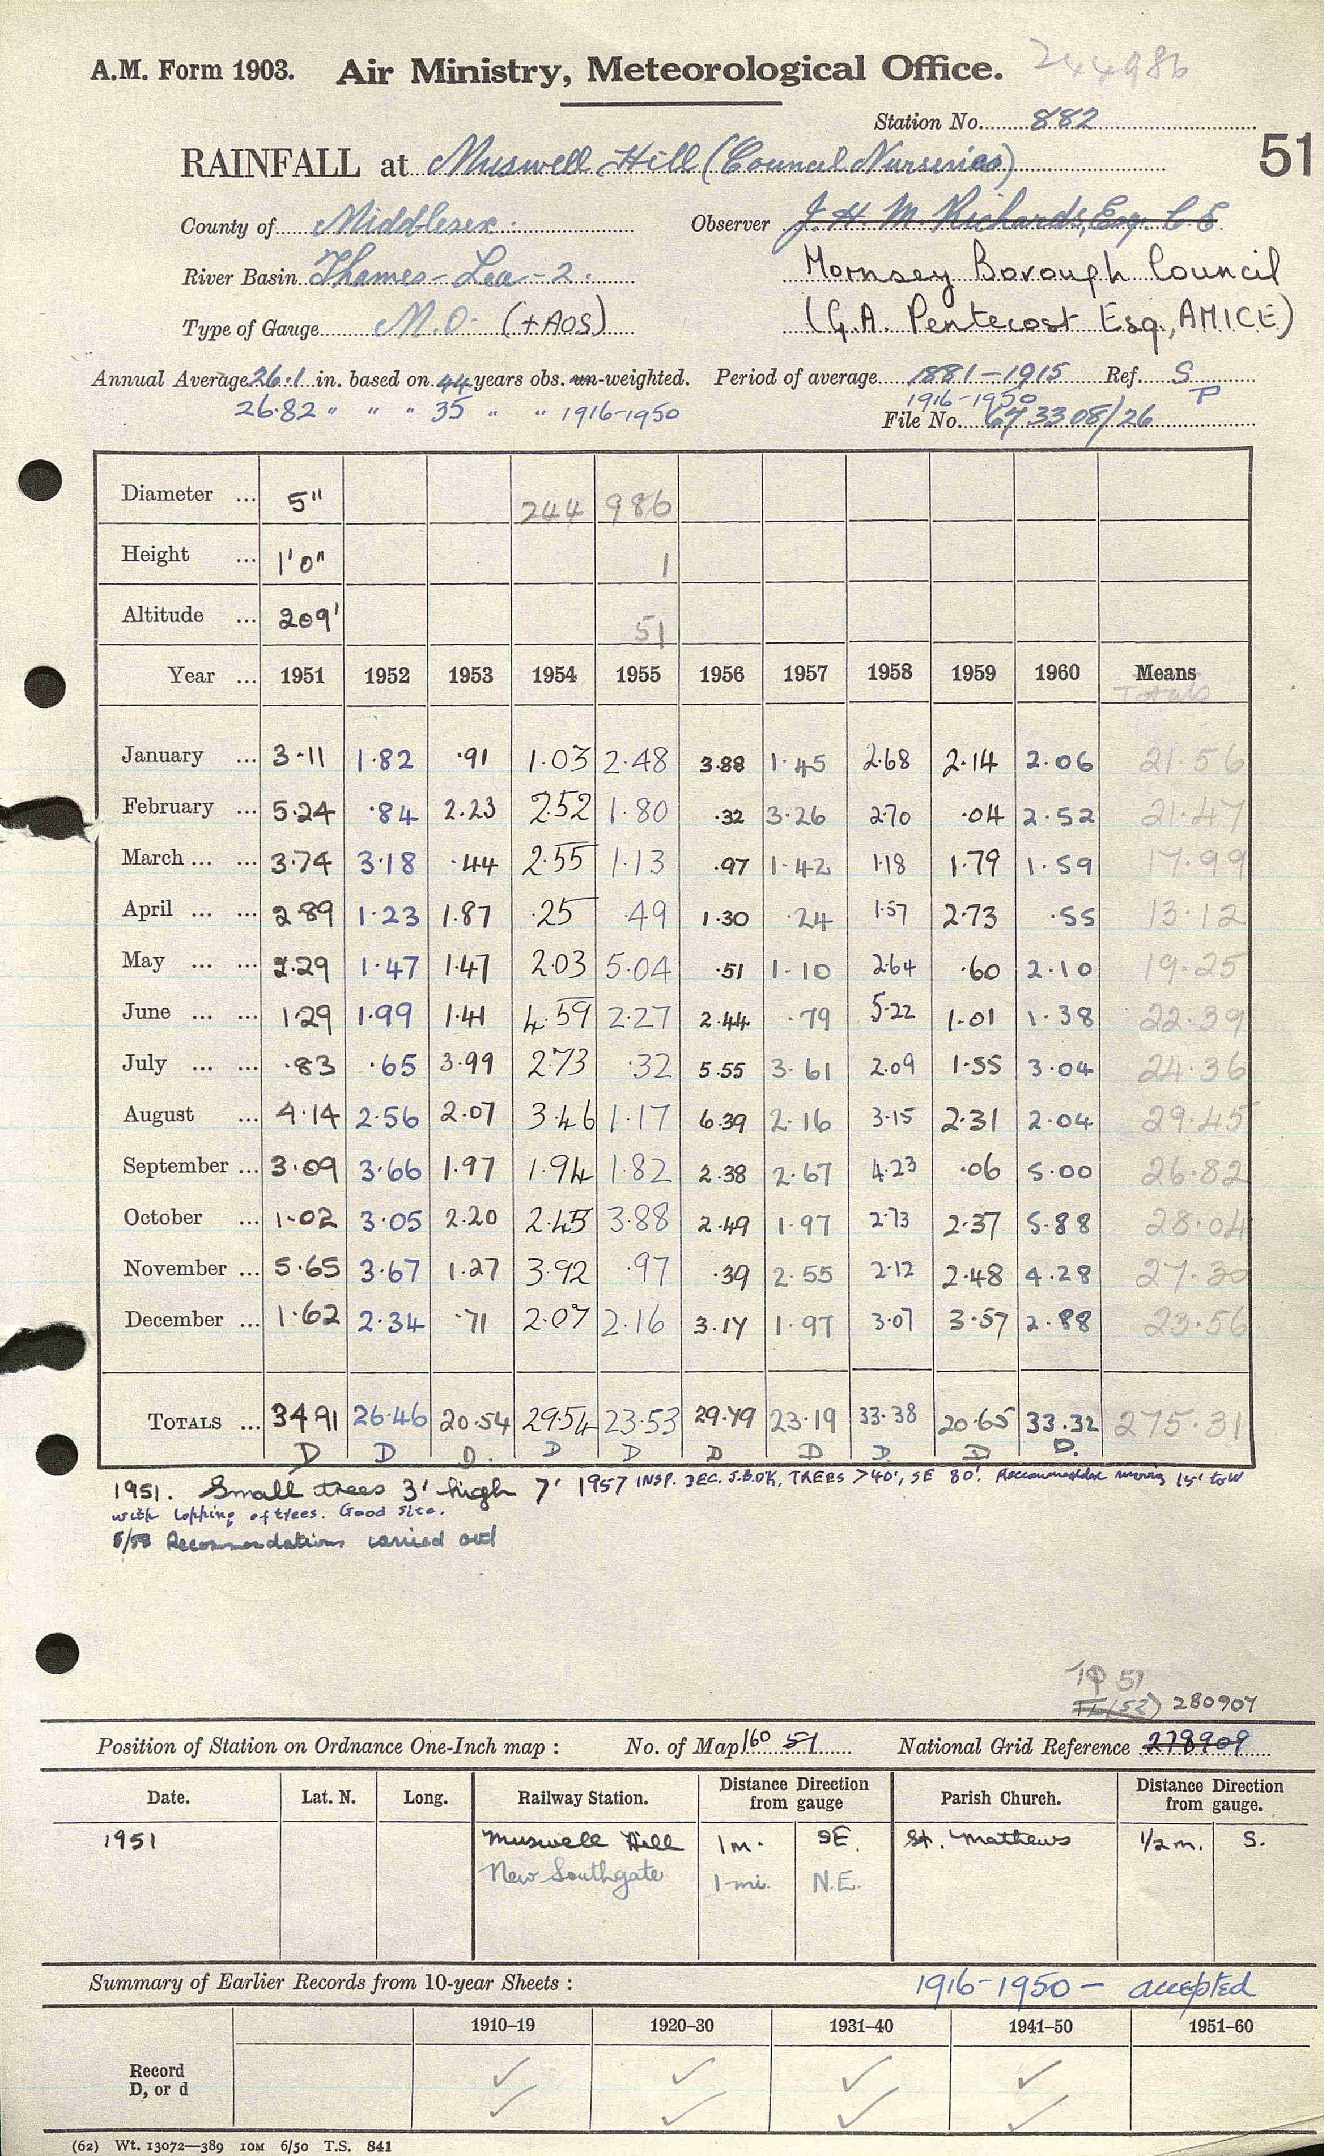 A.M. Form 1903. Air Ministry, Meteorological Office. 244986
Station No. 882
51
RAINFALL at Muswell Hill (Council Nurseries)
County of Middlesex. Observer J. H. M. Richards, Esq. C E
River Basin Thames-Lea-2. Hornsey Borough Council
Type of Gauge M.O. (+AOS) (G.A. Pentecost Esq., AMICE)
Annual Average 26.1 in. based on 44 years obs. un-weighted. Period of average 1881-1915 Ref. S
26.82 " " " 35 " " 1916-1950 1916-1950 P
File No. 673308/26
Diameter ... 5" 244 986
Height ... 1'0" 1
Altitude ... 209' 51
Year ... 1951 1952 1953 1954 1955 1956 1957 1958 1959 1960 Means
Totals
January ... 3.11 1.82 .91 1.03 2.48 3.88 1.45 2.68 2.14 2.06 21.56
February ... 5.24 .84 2.23 2.52 1.80 .32 3.26 2.70 .04 2.52 21.47
March ... ... 3.74 3.18 .44 2.55 1.13 .97 1.42 1.18 1.79 1.59 17.99
April ... ... 2.89 1.23 1.87 .25 .49 1.30 .24 1.57 2.73 .55 13.12
May ... ... 2.29 1.47 1.47 2.03 5.04 .51 1.10 2.64 .60 2.10 19.25
June ... ... 1.29 1.99 1.41 4.59 2.27 2.44 .79 5.22 1.01 1.38 22.39
July ... ... .83 .65 3.99 2.73 .32 5.55 3.61 2.09 1.55 3.04 24.36
August ... 4.14 2.56 2.07 3.46 1.17 6.39 2.16 3.15 2.31 2.04 29.45
September ... 3.09 3.66 1.97 1.94 1.82 2.38 2.67 4.23 .06 5.00 26.82
October ... 1.02 3.05 2.20 2.45 3.88 2.49 1.97 2.73 2.37 5.88 28.04
November ... 5.65 3.67 1.27 3.92 .97 .39 2.55 2.12 2.48 4.28 27.30
December ... 1.62 2.34 .71 2.07 2.16 3.17 1.97 3.07 3.57 2.88 23.56
TOTALS ... 34.91 26.46 20.54 29.54 23.53 29.79 23.19 33.38 20.65 33.32 275.31
D D D. D D D D D D D.
1951. Small trees 3' high 7' 1957 INSP. DEC. J.B. OK, TREES >40', SE 80'. Recommended moving 15' to W
with lopping of trees. Good site.
5/58 Recommendations carried out
TQ 51
TL(52) 280907
Position of Station on Ordnance One-Inch map : No. of Map 160 51 National Grid Reference 278909
Date. Lat. N. Long. Railway Station. Distance from gauge Direction Parish Church. Distance from gauge. Direction
1951 Muswell Hill 1m. SE. St. Mathews 1/2m. S.
New Southgate 1 mi. N.E.
Summary of Earlier Records from 10-year Sheets : 1916-1950 - accepted
1910–19 1920–30 1931–40 1941–50 1951–60
Record
D, or d
(62) Wt. 13072—389 10M 6/50 T.S. 841